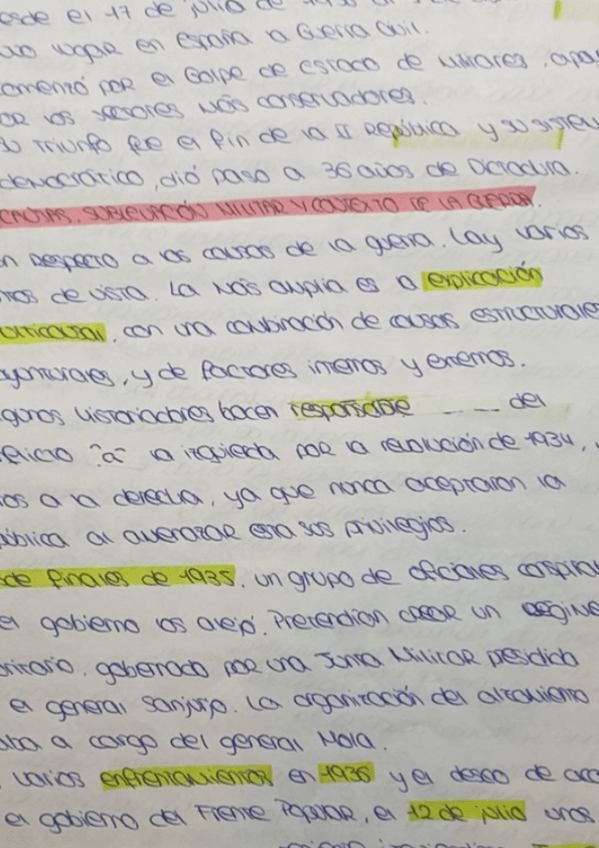 esde el 17 de julio de
uvo lugar en España la Guerra Civil.
omenzó por el Golpe de estado de Militares, apo
or los sectores más conservadores.
Su triunfo fue el fin de la II República y su sistem
democrático, dió paso a 36 años de Dictadura.
CAUSAS, SUBLEVACIÓN MILITAR Y CONTEXTO DE LA GUERRA.
n respecto a las causas de la guerra, hay varios
ntos de vista. La más amplia es a explicación
ulticausal, con una combinación de causas estructurales
oyunturales, y de factores internos y externos.
gunos historiadores hacen responsable ___ del
nflicto "a" la izquierda por la revolución de 1934,
ros a la derecha, ya que nunca aceptaron la
pública al amenazar esta sus privilegios.
de finales de 1935, un grupo de oficiales conspira
el gobierno los alejó. Pretendían crear un régime
oritario, gobernado por una Junta Militar presidida
el general Sanjurjo. La organización del alzamiento
aba a cargo del general Mola.
varios enfrentamientos en 1936 y el deseo de
el gobierno del Frente Popular, el 12 de julio unos